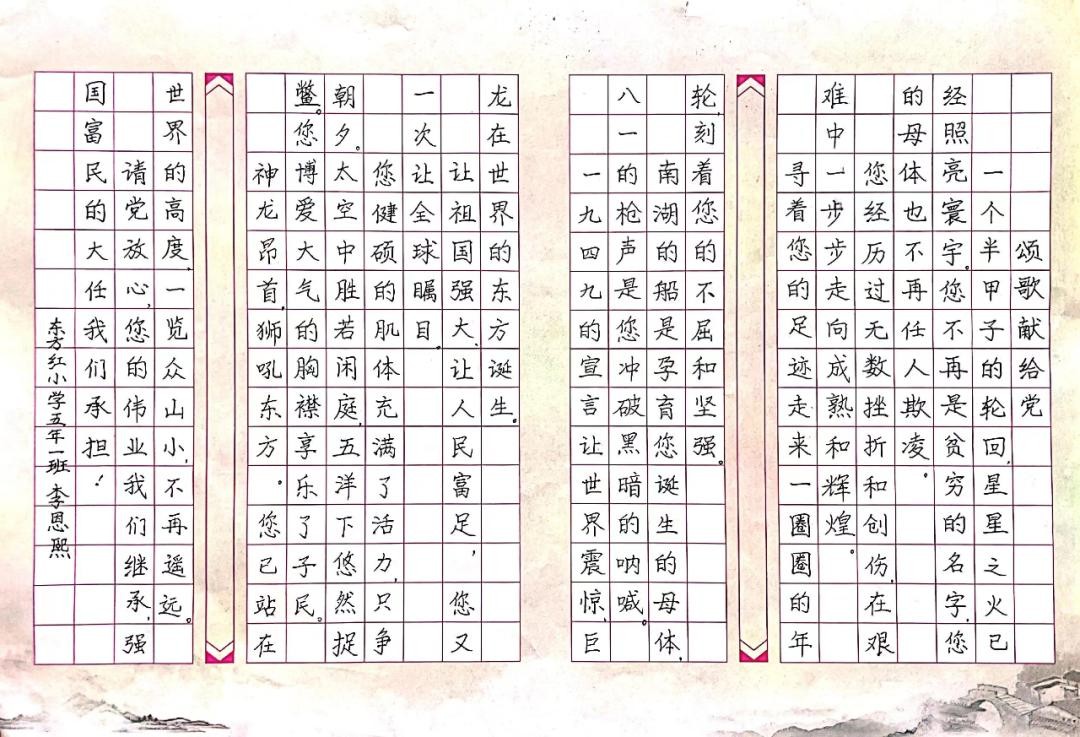 颂歌献给党
一个半甲子的轮回,星星之火已
经照亮寰宇。您不再是贫穷的名字,您
的母体也不再任人欺凌。
您经历过无数挫折和创伤,在艰
难中一步步走向成熟和辉煌。
寻着您的足迹走来一圈圈的年
轮,刻着您的不屈和坚强。
南湖的船是孕育您诞生的母体,
八一的枪声是您冲破黑暗的呐喊。
一九四九的宣言让世界震惊,巨
龙在世界的东方诞生。
让祖国强大、让人民富足,您又
一次让全球瞩目。
您健硕的肌体充满了活力,只争
朝夕。太空中胜若闲庭,五洋下悠然捉
鳖。您博爱大气的胸襟享乐了子民。
神龙昂首,狮吼东方。您已站在
世界的高度,一览众山小,不再遥远。
请党放心,您的伟业我们继承,强
国富民的大任我们承担!
东方红小学五年一班 李恩熙